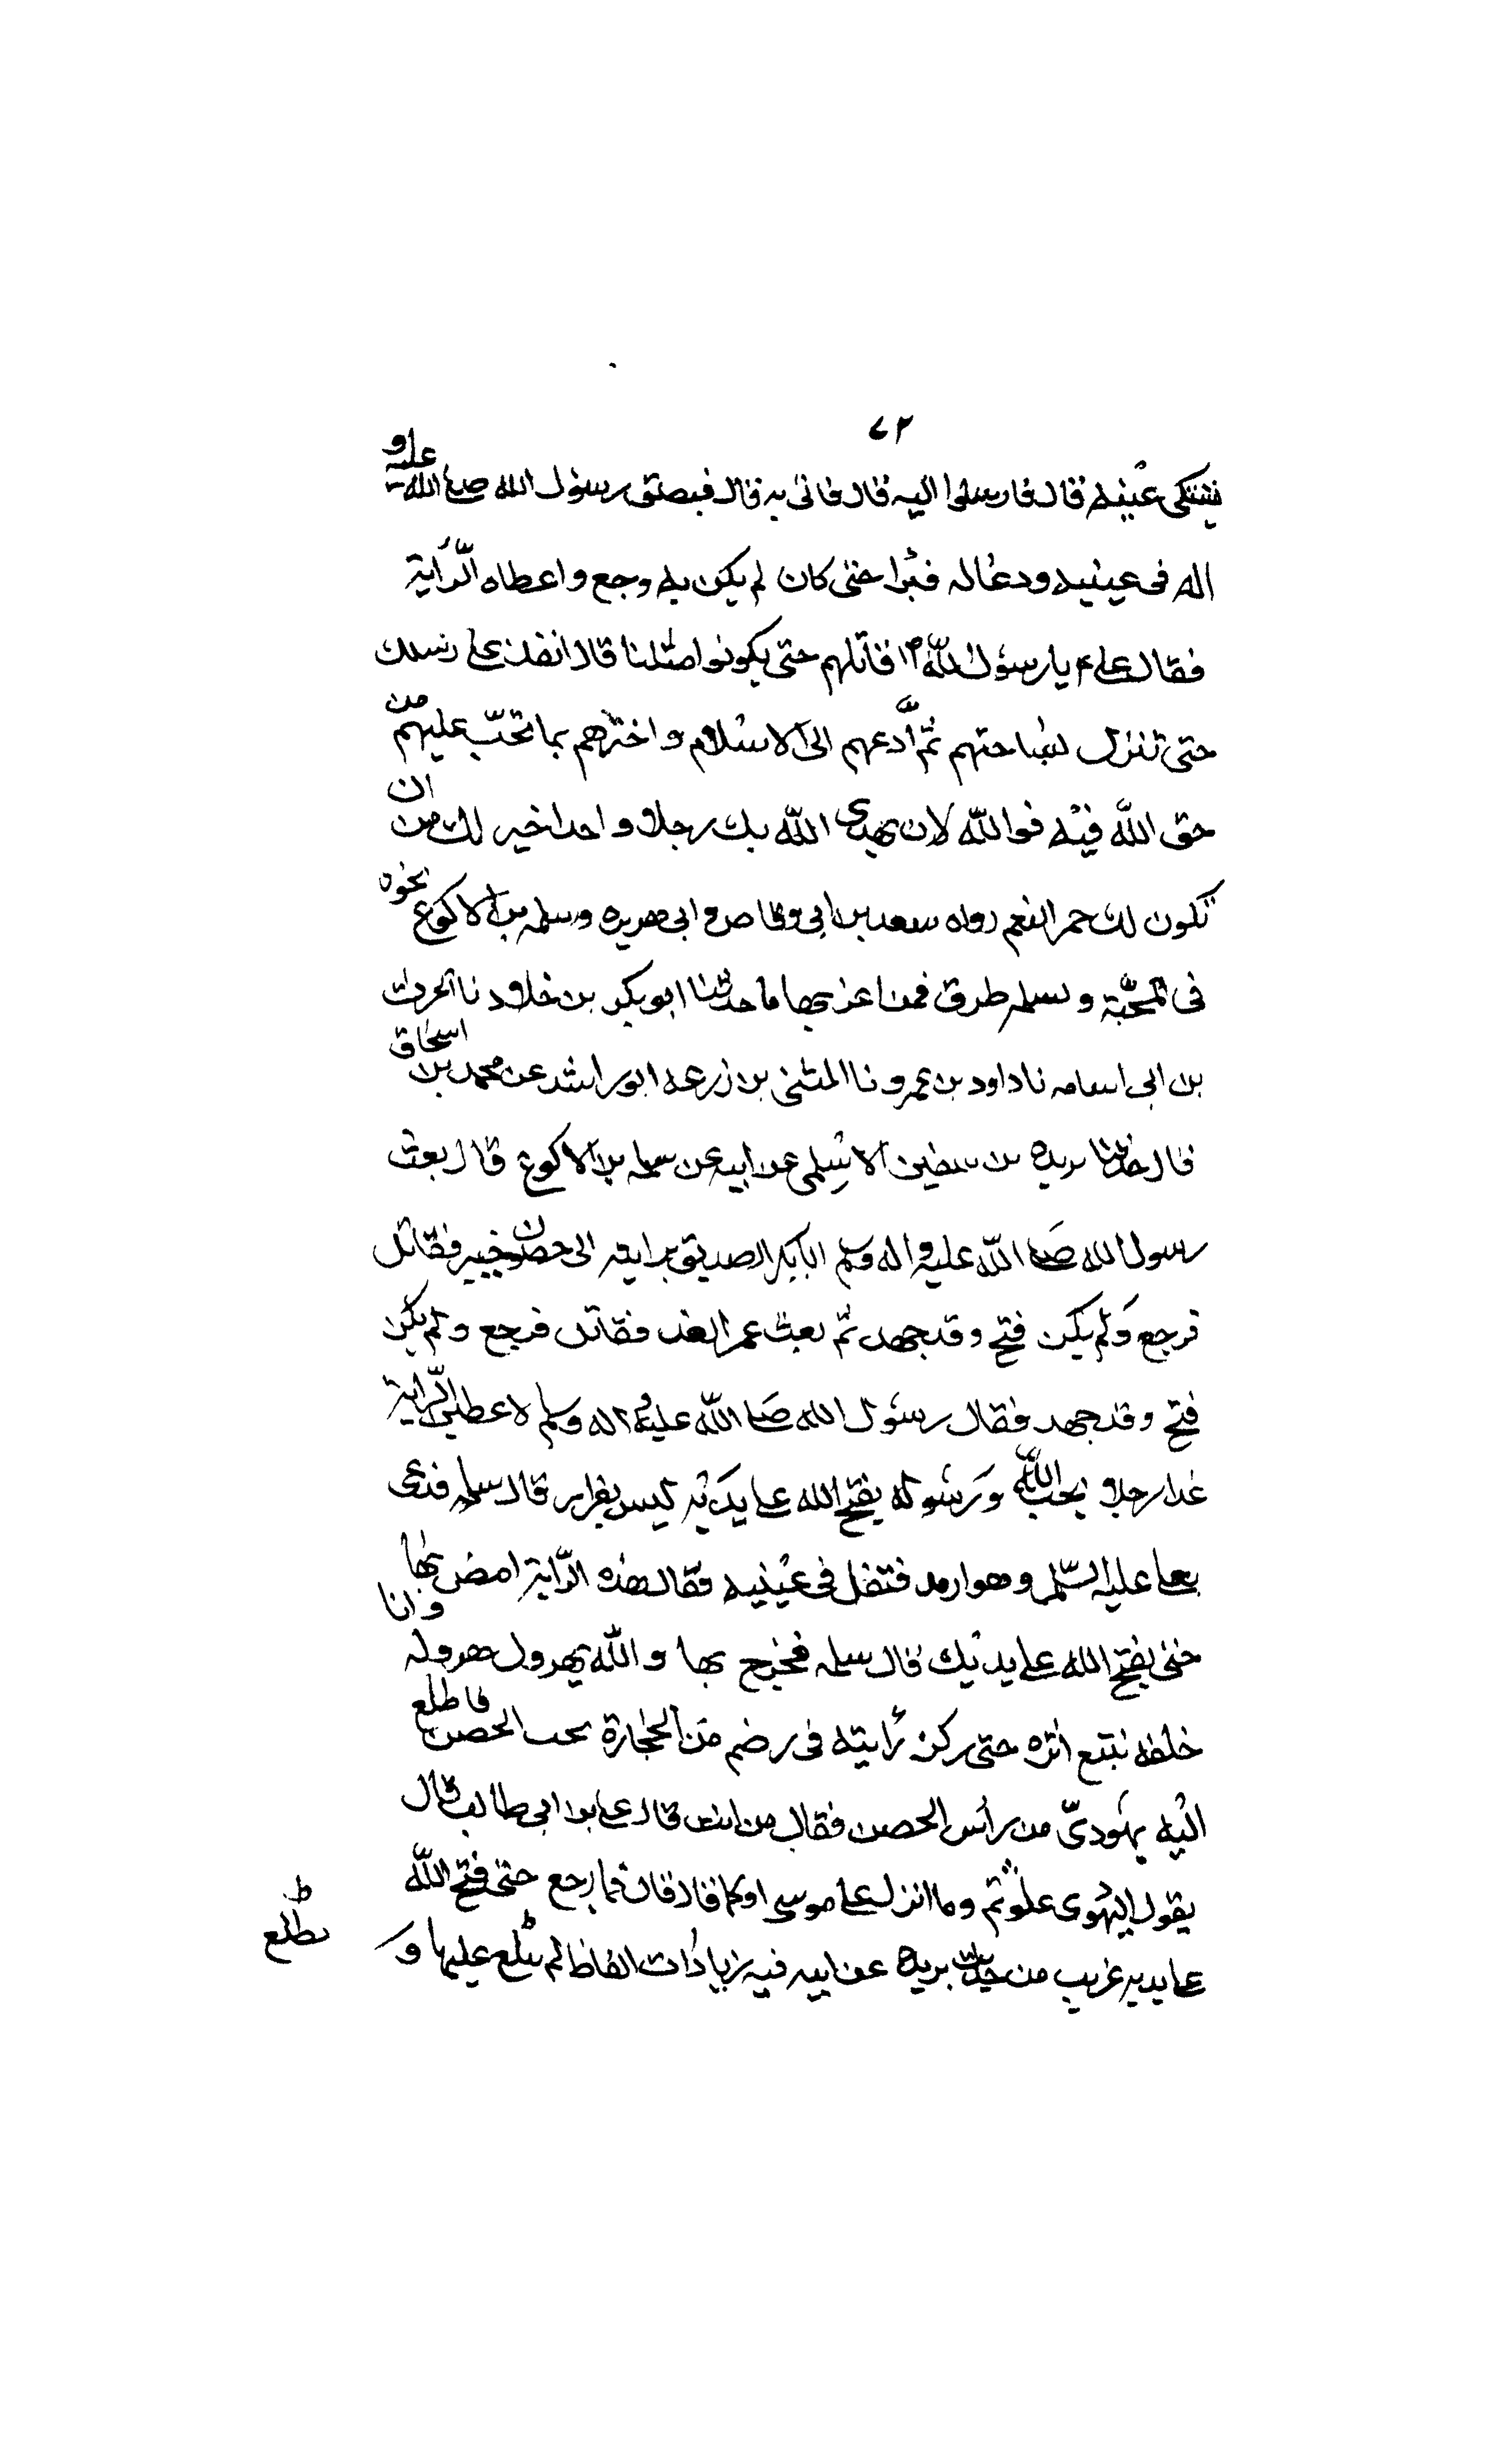 ٧٢
يشتكى عينيه قال فارسلوا اليه قال فاتى به قال فبصق رسول الله صلى الله عليه و
اله فى عينيه ودعا له فبرا حتى كان لم يكن به وجع واعطاه الرّاية
فقال على ع يا رسول الله ص اقاتلهم حتى يكونوا مثلنا قال انفذ على رسلك
حتى تنزل بساحتهم ثم ادعهم الى الاسلام واخبرهم بما تحب عليهم من
حق الله فيه فوالله لان يهدى الله بك رجلا واحدا خير لك من ان
تكون لك حمر النعم رواه سعد بن ابى وقاص وابى هريره وسلمه بن الاكوع نحوه
فى المحبّة ولسلمه طرق فمن اغربها ما حدثنا ابو بكر بن خلاد نا الحرث
بن ابى اسامه نا داود بن عمرو نا المثنى بن زرعه ابو راشد عن محمد بن اسحاق
قال حدثنا بريده بن سفين الاسلمى عن ابيه عن سلمه بن الاكوع قال بعث
رسول الله صلى الله عليه واله وسلم ابا بكر الصديق برايته الى حصون خيبر فقاتل
فرجع ولم يكن فتح وقد جهد ثم بعث عمر الغد فقاتل فرجع ولم يكن
فتح وقد جهد فقال رسول الله صلى الله عليه واله وسلم لاعطين الراية
غدا رجلا يحب الله ورسوله يفتح الله على يديه ليس بفرار قال سلمه فدعى
بعلى عليه السّلم وهو ارمد فتفل فى عينيه فقال هذه الرّاية امض بها
حتى يفتح الله على يديك قال سلمه فخرج بها والله يهرول هروله وانا
خلفه نتبع اثره حتى ركز رايته فى رضم من الحجارة تحت الحصن فاطلع
اليه يهودىّ من رأس الحصن فقال من انت قال على بن ابى طالب قال
يقول اليهوى علوتم وما انزل على موسى او كما قال قال فما رجع حتى فتح الله
على يديه غريب من حديث بريده عن ابيه فيه زيادات الفاظ لم يتلع عليها و
ط
يطلع